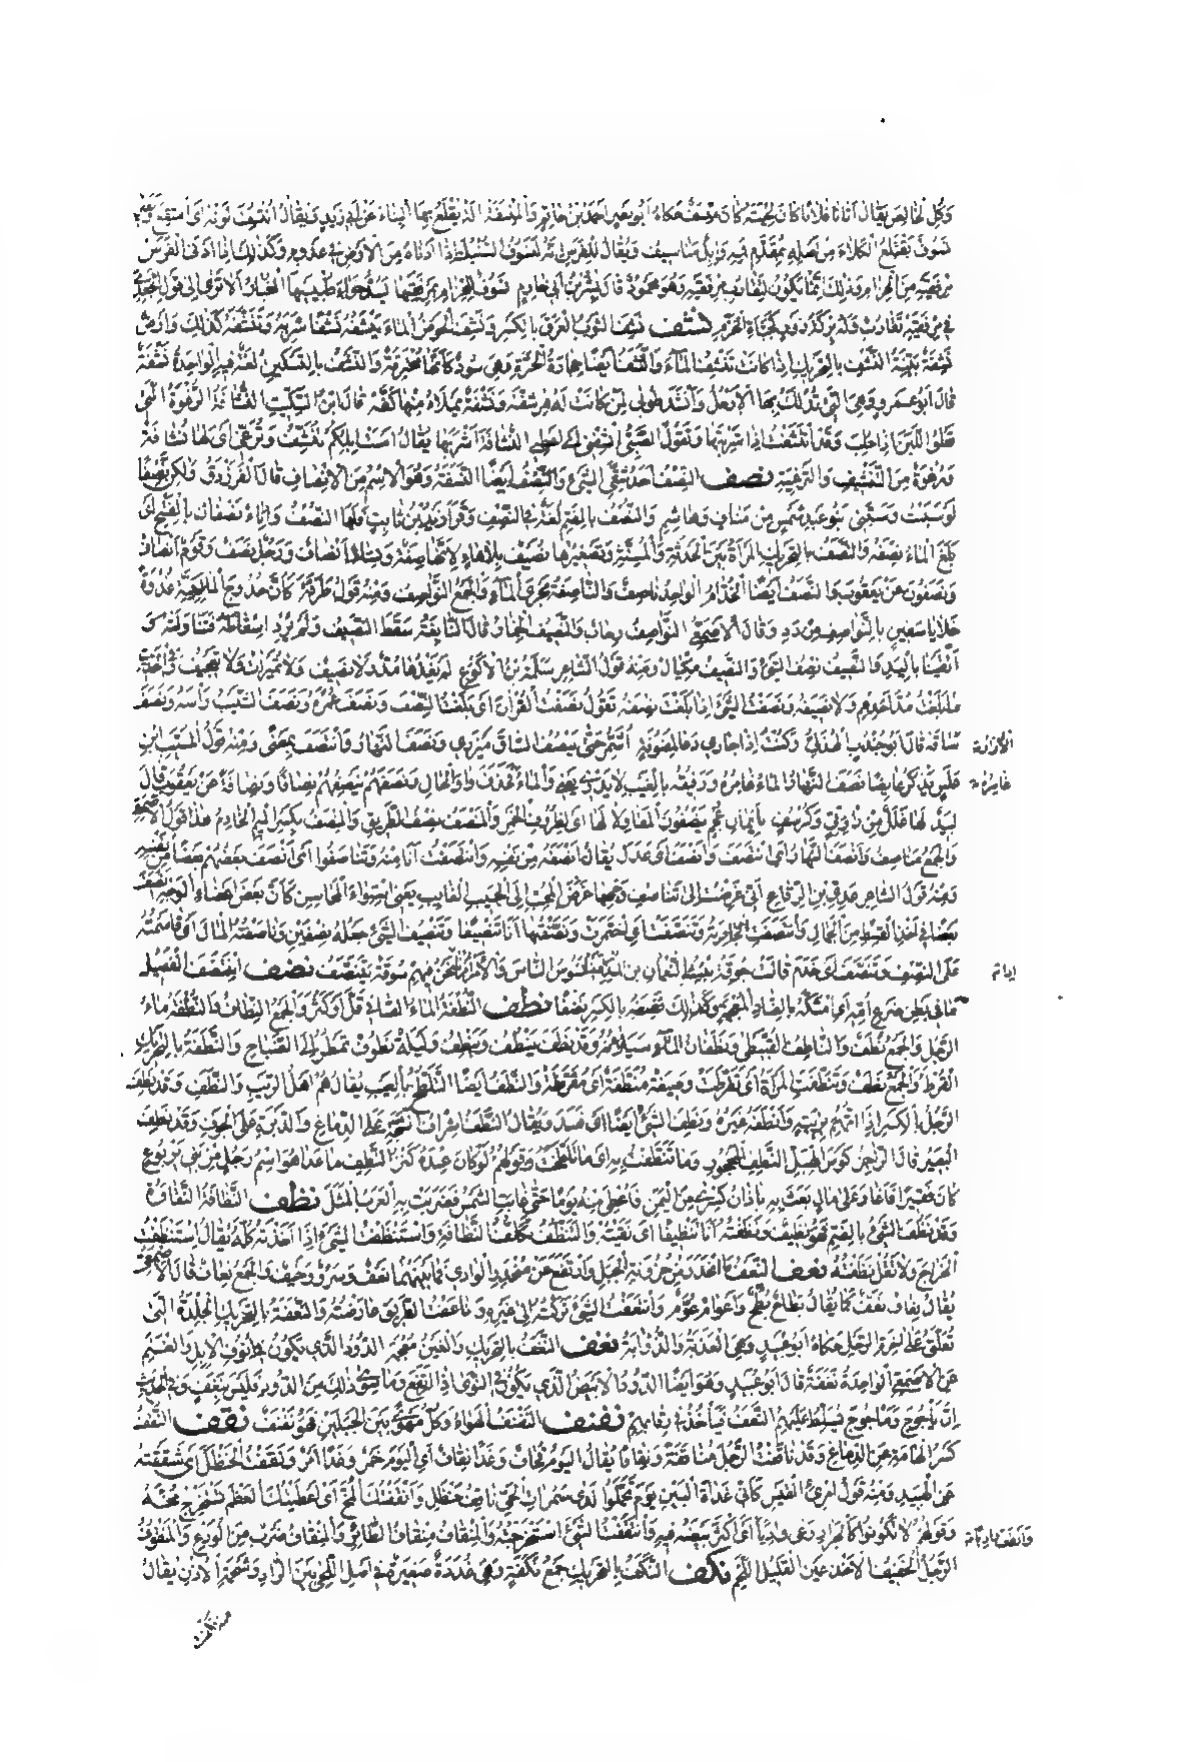 وكل الحالين يقال أتانا فلان كان لحيته حكاه أبو نصر أحمد بن حاتم والمنسفة آلة يقلع بها البناء عن أبي زيد ويقال انتسف لونه أي
من الأرض في عدوه وكذلك إذا أدنى الفرس
مرفقيه من الحزام وذلك إنما يكون لتقارب مرفقيه وهو محمود قال بشر بن أبي خازم نسوف للحزام بمرفقيها يسد خواء طبييها الغبار ألا ترى إلى قول الجعدي
في مرفقيه تقارب وله بركة زور كجبأة الخزم نشف نشف الثوب العرق بالكسر ونشف الحوض الماء ينشفه نشفا شربه وتنشفه كذلك وأرض
نشفة بينة النشف بالتحريك إذا كانت تنشف الماء والنشفة أيضا حجارة الحرة وهي سود كأنها محترقة والنشف بالتسكين لغة فيه الواحدة نشفة
قال أبو عمرو وهي التي تدلك بها الأرجل وأنشد طوبى لمن كانت له هرشفه ونشفة يملأ منها كفه قال ابن السكيت النشافة الرغوة التي
تعلو اللبن إذا حلب وقد انتشفت إذا شربتها ويقول الصبي أنشفني أي أعطني النشافة أشربها يقال أمست إبلكم تنشف وترغي أي لها نشافة
ورغوة من التنشيف والترغية نصف النصف أحد شقي الشيء والنصف أيضا النصفة وهو الاسم من الإنصاف قال الفرزدق ولكن نصفا
لو سببت وسبني بنو عبد شمس من مناف وهاشم والنصف بالضم لغة في النصف وقرأ زيد بن ثابت فلها النصف وإناء نصفان بالفتح أي
بلغ الماء نصفه والنصف بالتحريك المرأة بين الحدثة والمسنة وتصغيرها نصيف بلا هاء لأنها صفة ونساء أنصاف ورجل نصف وقوم أنصاف
ونصفون عن يعقوب والنصف أيضا الخدام الواحد ناصف والناصفة مجرى الماء والجمع النواصف ومنه قول طرفة كأن حدوج المالكية غدوة
خلايا سفين بالنواصف من دد وقال الأصمعي النواصف رحاب والنصيف الخمار قال النابغة سقط النصيف ولم ترد إسقاطه فتناولته
واتقتنا باليد والنصيف نصف الشيء والنصيف مكيال ومنه قول الشاعر سلمة بن الأكوع لم يغذها مد ولا نصيف ولا تميرات ولا تعجيف وفي الحديث
ما بلغت مد أحدهم ولا نصيفه ونصفت الشيء إذا بلغت نصفه تقول نصفت القرآن أي بلغت النصف ونصف عمره ونصف الشيب رأسه ونصف
ساقه قال أبو جندب الهذلي وكنت إذا جاري دعا لمضوفة أشمر حتى ينصف الساق مئزري ونصف النهار وانتصف بمعنى ومنه قول المسيب بن
علس يذكر غائصا نصف النهار الماء غامره ورفيقه بالغيب لا يدري يعني والماء غامره فحذف واو الحال ونصفهم ينصفهم نصافا ونصافة عن يعقوب قال
لبيد لها غلل من رازقي وكرسف بأيمان عجم ينصفون المقاولا لها أي لظروف الخمر والمنصف نصف الطريق والمنصف بكسر الميم الخادم هذا قول الأصمعي
والجمع مناصف وأنصف النهار أي انتصف وأنصف أي عدل يقال أنصفه من نفسه وانتصفت أنا منه وتناصفوا أي أنصف بعضهم بعضا من نفسه
ومنه قول الشاعر إني غرضت إلى تناصف وجهها غرض المحب إلى الحبيب الغائب يعني استواء المحاسن كأن بعض أعضاء الوجه أنصف
بعضا في أخذ القسط من الجمال وانتصفت الجارية وتنصفت أي اختمرت ونصفتها أنا تنصيفا وتنصيف الشيء جعله نصفين وناصفته المال أي قاسمته
على النصف وتنصف أي خدم قالت حرقة بنت النعمان بن المنذر فبينا نسوس الناس والأمر أمرنا إذا نحن فيهم سوقة نتنصف نضف انتضف الفصيل
ما في بطن ضرع أمه أي امتكه بالضاد المعجمة وكذلك نضفه بالكسر نضفا نطف النطفة الماء الصافي قل أو كثر والجمع النطاف والنطفة ماء
الرجل والجمع نطف والناطف القبيطي ونطفان الماء سيلانه وقد نطف ينطف وينطف وليلة نطوف تمطر إلى الصباح والنطفة بالتحريك
القرط والجمع نطف وتنطفت المرأة أي تقرطت ووصيفة منطفة أي مقرطة والنطف أيضا التلطخ بالعيب يقال هم أهل الريب والنطف وقد نطف
الرجل بالكسر إذا اتهم بريبة وأنطفه غيره ونطف الشيء أيضا أي فسد ويقال النطف إشراف الشجة على الدماغ والدبرة على الجوف وقد نطف
البعير قال الراجز كوس الهبل النطف المحجوز وما تنطفت به أي ما تلطخت وقولهم لو كان عنده كنز النطف ما عدا هو اسم رجل من بني يربوع
كان فقيرا فأغار على مال بعث به باذان كسرى من اليمن فأعطى منه يوما حتى غابت الشمس فضربت به العرب المثل نظف النظافة النقاوة
وقد نظف الشيء بالضم فهو نظيف ونظفته أنا تنظيفا أي نقيته والتنظف تكلف النظافة واستنظفت الشيء إذا أخذته كله يقال استنظفت
الخراج ولا تقل نظفته نعف النعف ما انحدر من حزونة الجبل وارتفع عن منحدر الوادي فما بينهما نعف وسرو وخيف والجمع نعاف قال الأصمعي
يقال نعاف نعف كما يقال بطاح بطح وأعوام عوم وانتعفت الشيء تركته إلى غيره وناعفت الطريق عارضته والنعفة بالتحريك الجلدة التي
تعلق على آخرة الرحل حكاه أبو عبيد وهي العذبة والذؤابة نغف النغف بالتحريك والغين معجمة الدود الذي يكون في أنوف الإبل والغنم
عن الأصمعي الواحدة نغفة قال أبو عبيد وهو أيضا الدود الأبيض الذي يكون في النوى إذا أنقع وما سوى ذلك من الدود فليس بنغف وفي الحديث
إن يأجوج ومأجوج يسلط عليهم النغف فيأخذ في رقابهم نفنف النفنف الهواء وكل مهوى بين الجبلين فهو نفنف نقف النقف
كسر الهامة عن الدماغ وقد ناقفت الرجل مناقفة ونقافا يقال اليوم قحاف وغدا نقاف أي اليوم خمر وغدا أمر ونقفت الحنظل أي شققته
عن الهبيد ومنه قول امرئ القيس كأني غداة البين يوم تحملوا لدى سمرات الحي ناقف حنظل وأنقفتك المخ أي أعطيتك العظم تستخرج مخه
وقولهم لا تكونوا كالجراد رعى واديا وأنقف واديا أي أكثر بيضه فيه وانتقفت الشيء استخرجته والمنقاف منقار الطائر والمنقاف ضرب من الودع والمنقوف
الرجل الخفيف الأخدعين القليل اللحم نكف النكف بالتحريك جمع نكفة وهي غدة صغيرة في أصل اللحي بين الرأد وشحمة الأذن يقال